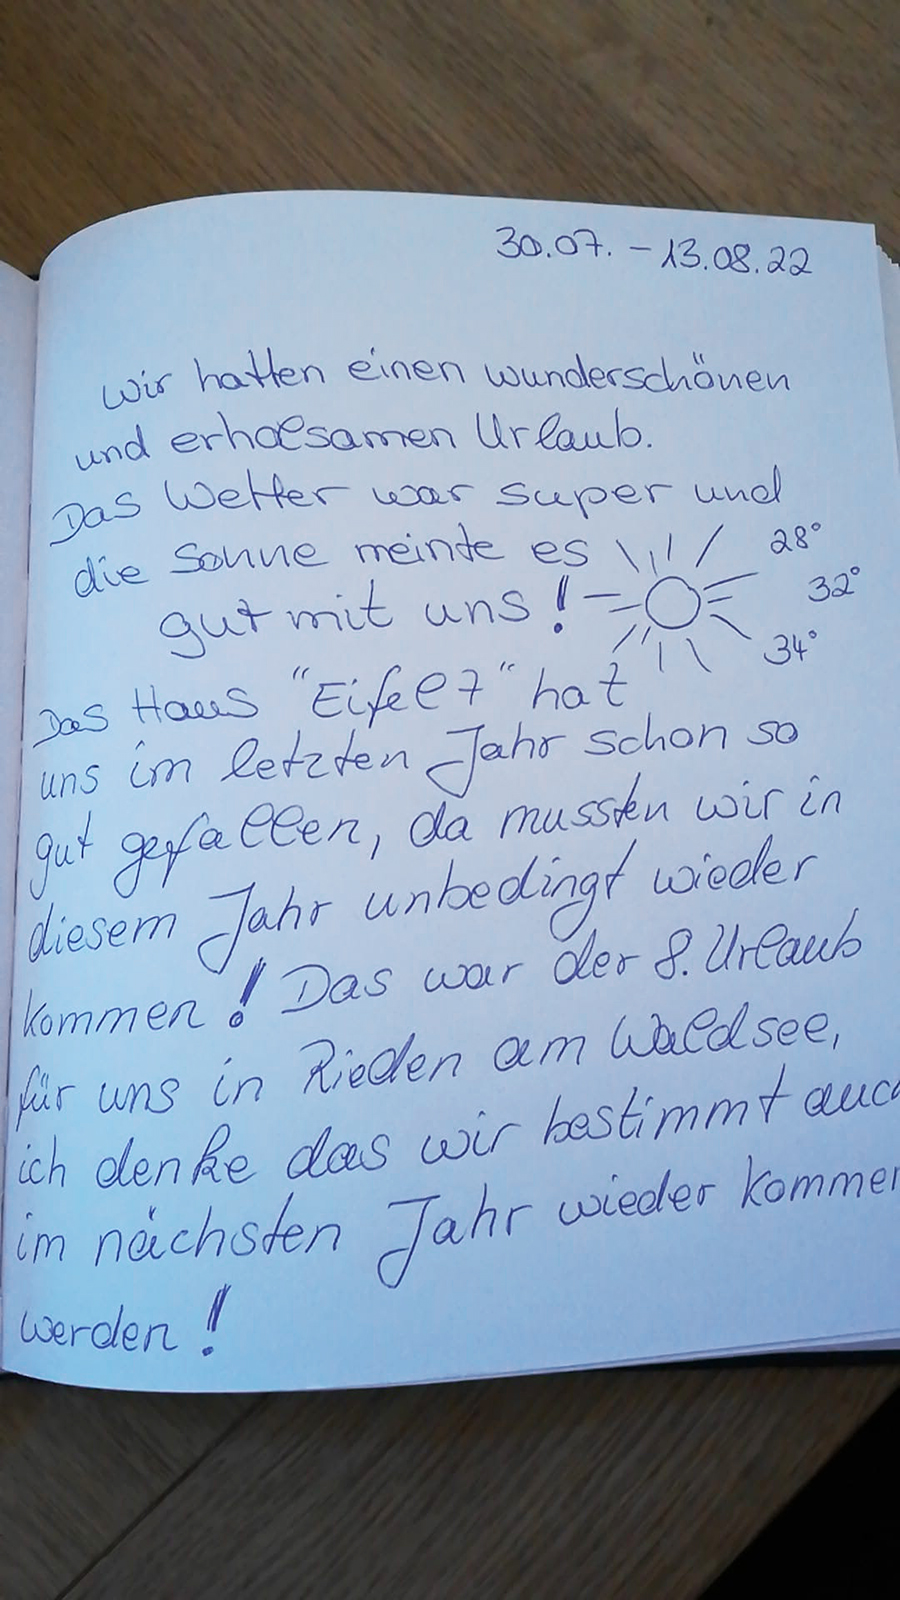 30.07. – 13.08.22
Wir hatten einen wunderschönen
und erholsamen Urlaub.
Das Wetter war super und
die Sonne meinte es
28°
32°
gut mit uns!
34°
Das Haus "Eifel 7" hat
uns im letzten Jahr schon so
gut gefallen, da mussten wir in
diesem Jahr unbedingt wieder
kommen! Das war der 8. Urlaub
für uns in Rieden am Waldsee,
ich denke das wir bestimmt auch
im nächsten Jahr wieder kommen
werden!